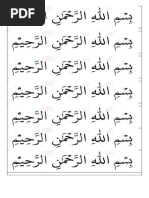 بِسْمِ اللهِ الرَّحْمَنِ
بِسْمِ اللهِ الرَّحْمَنِ الرَّحِيْمِ
بِسْمِ اللهِ الرَّحْمَنِ الرَّحِيْمِ
بِسْمِ اللهِ الرَّحْمَنِ الرَّحِيْمِ
بِسْمِ اللهِ الرَّحْمَنِ الرَّحِيْمِ
بِسْمِ اللهِ الرَّحْمَنِ الرَّحِيْمِ
بِسْمِ اللهِ الرَّحْمَنِ الرَّحِيْمِ